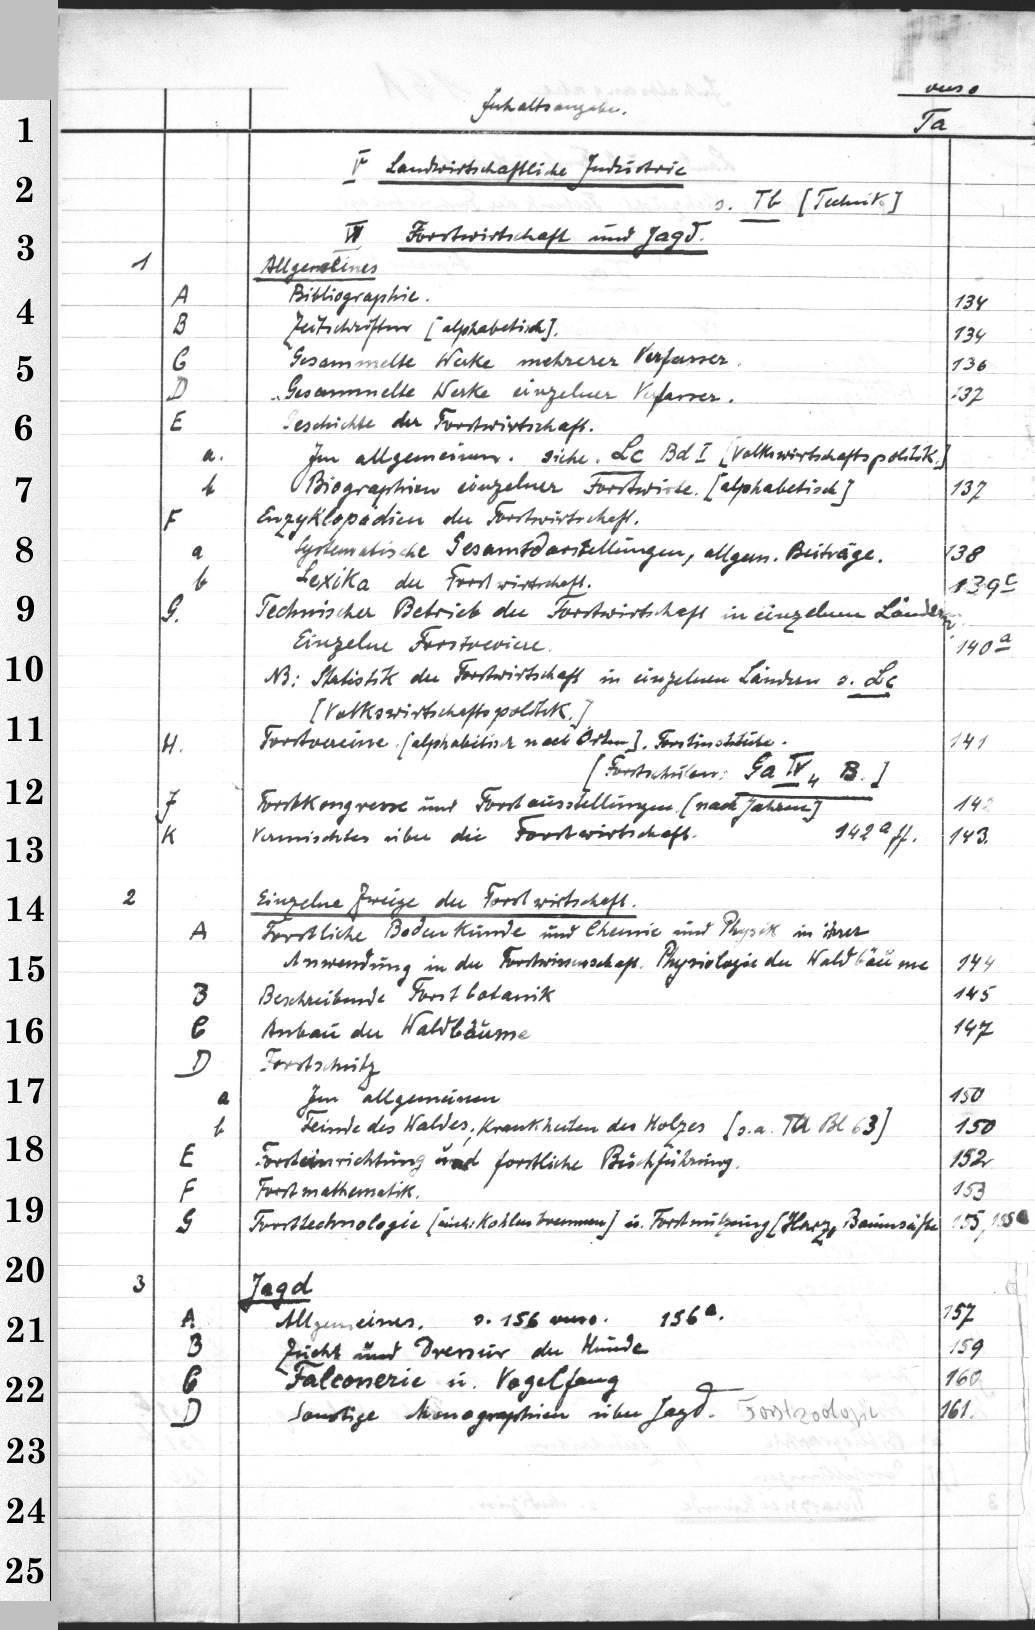 verso
Inhaltsangabe.
Ta
V Landwirtschaftliche Industrie
s. Tb [Technik]
VI Forstwirtschaft und Jagd.
1 Allgemeines
A Bibliographie. 134
B Zeitschriften [alphabetisch]. 134
C Gesammelte Werke mehrerer Verfasser. 136
D Gesammelte Werke einzelner Verfasser. 137
E Geschichte der Forstwirtschaft.
a. Im allgemeinen. siehe. Lc Bd I [Volkswirtschaftspolitik.]
b Biographien einzelner Forstwirte. [alphabetisch] 137
F Enzyklopädien der Forstwirtschaft.
a Systematische Gesamtdarstellungen, allgem. Beiträge. 138
b Lexika der Forstwirtschaft. 139c
G. Technischer Betrieb der Forstwirtschaft in einzelnen Ländern.
Einzelne Forstreviere. 140a
NB: Statistik der Forstwirtschaft in einzelnen Ländern s. Lc
[Volkswirtschaftspolitik.]
H. Forstvereine. [alphabetisch nach Orten]. Forstinstitute. 141
[Forstschulen: Ga IV, B.]
J Forstkongresse und Forstausstellungen. [nach Jahren] 142
K Vermischtes über die Forstwirtschaft. 142a ff. 143.
2 Einzelne Zweige der Forstwirtschaft.
A Forstliche Bodenkunde und Chemie und Physik in ihrer
Anwendung in der Forstwissenschaft. Physiologie der Waldbäume 144
B Beschreibende Forstbotanik 145
C Anbau der Waldbäume 147
D Forstschutz
a Im allgemeinen 150
b Feinde des Waldes, Krankheiten des Holzes [s.a. Ta Bl 63] 150
E Forsteinrichtung und forstliche Buchführung. 152
F Forstmathematik. 153
G Forsttechnologie [auch: Kohlenbrennen] u. Forstnutzung [Harz, Baumsäfte 155, 155a
3 Jagd
A Allgemeines. s. 156 verso. 156a. 157
B Zucht und Dressur der Hunde 159
C Falconerie u. Vogelfang 160
D Sonstige Monographien über Jagd. Forstzoologie 161.
1
2
3
4
5
6
7
8
9
10
11
12
13
14
15
16
17
18
19
20
21
22
23
24
25